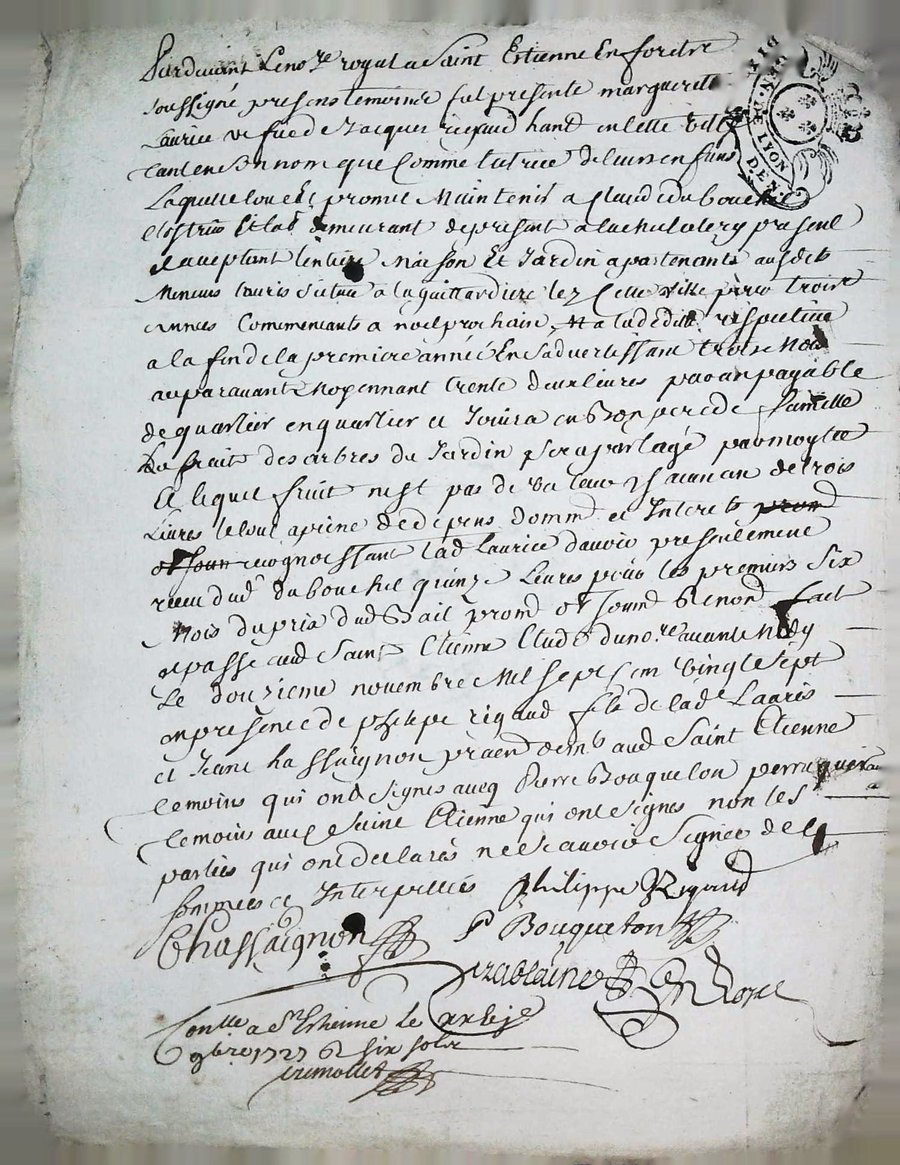 Pardevant Le no.re royal a Saint Estienne En foretz
soussigné presens temoins fut presente marguerite
Laurice vefue de Jacques rigaud hant en cette ville
tant en son nom que Comme tutrice de leurs enfans
Laquelle loue Et promet Maintenir a Claude dubouchet
demeurant de present a la chalatery present
Et acceptant l'entiere Maison Et Jardin apartenants ausdits
Mineurs situee a la guittardiere lez Cette ville pour trois
annees Commencants a noel prochain respective
a la fin de la premiere année En s'advertissant trois Mois
auparavant Moyennant trente deux livres par an payable
de quartier en quartier et Jouira en Bon pere de famille
Le fruit des arbres du Jardin sera partagé par moytié
et lequel fruit n'est pas de valeur chacun an de trois
Livres le tout a peine de depens domm et Interets prom
recognoissant lad Laurice d'avoir presentement
receu dud dubouchet quinze Livres pour les premiers six
Mois du prix dud Bail promd renond fait
et passé aud Saint Etienne Etude du no.re avant Midy
Le douzieme novembre Mil sept cent vingt sept
en presence de philipe rigaud fils de lad Lauris
et Jean chassaignon praticien demt aud Saint Etienne
temoins qui ont signes avec Pierre Bouqueton perruquier
temoins aud Saint Etienne qui ont signes non les
parties qui ont declarés ne scavoir Signer de ce
sommees et Interpellées Philippe Rigaud
Chassaignon P Bouqueton
no.re Royal
Con.lle a St Estienne le
9bre 1727 R six solz
DIX DEN. GEN. DE LYON